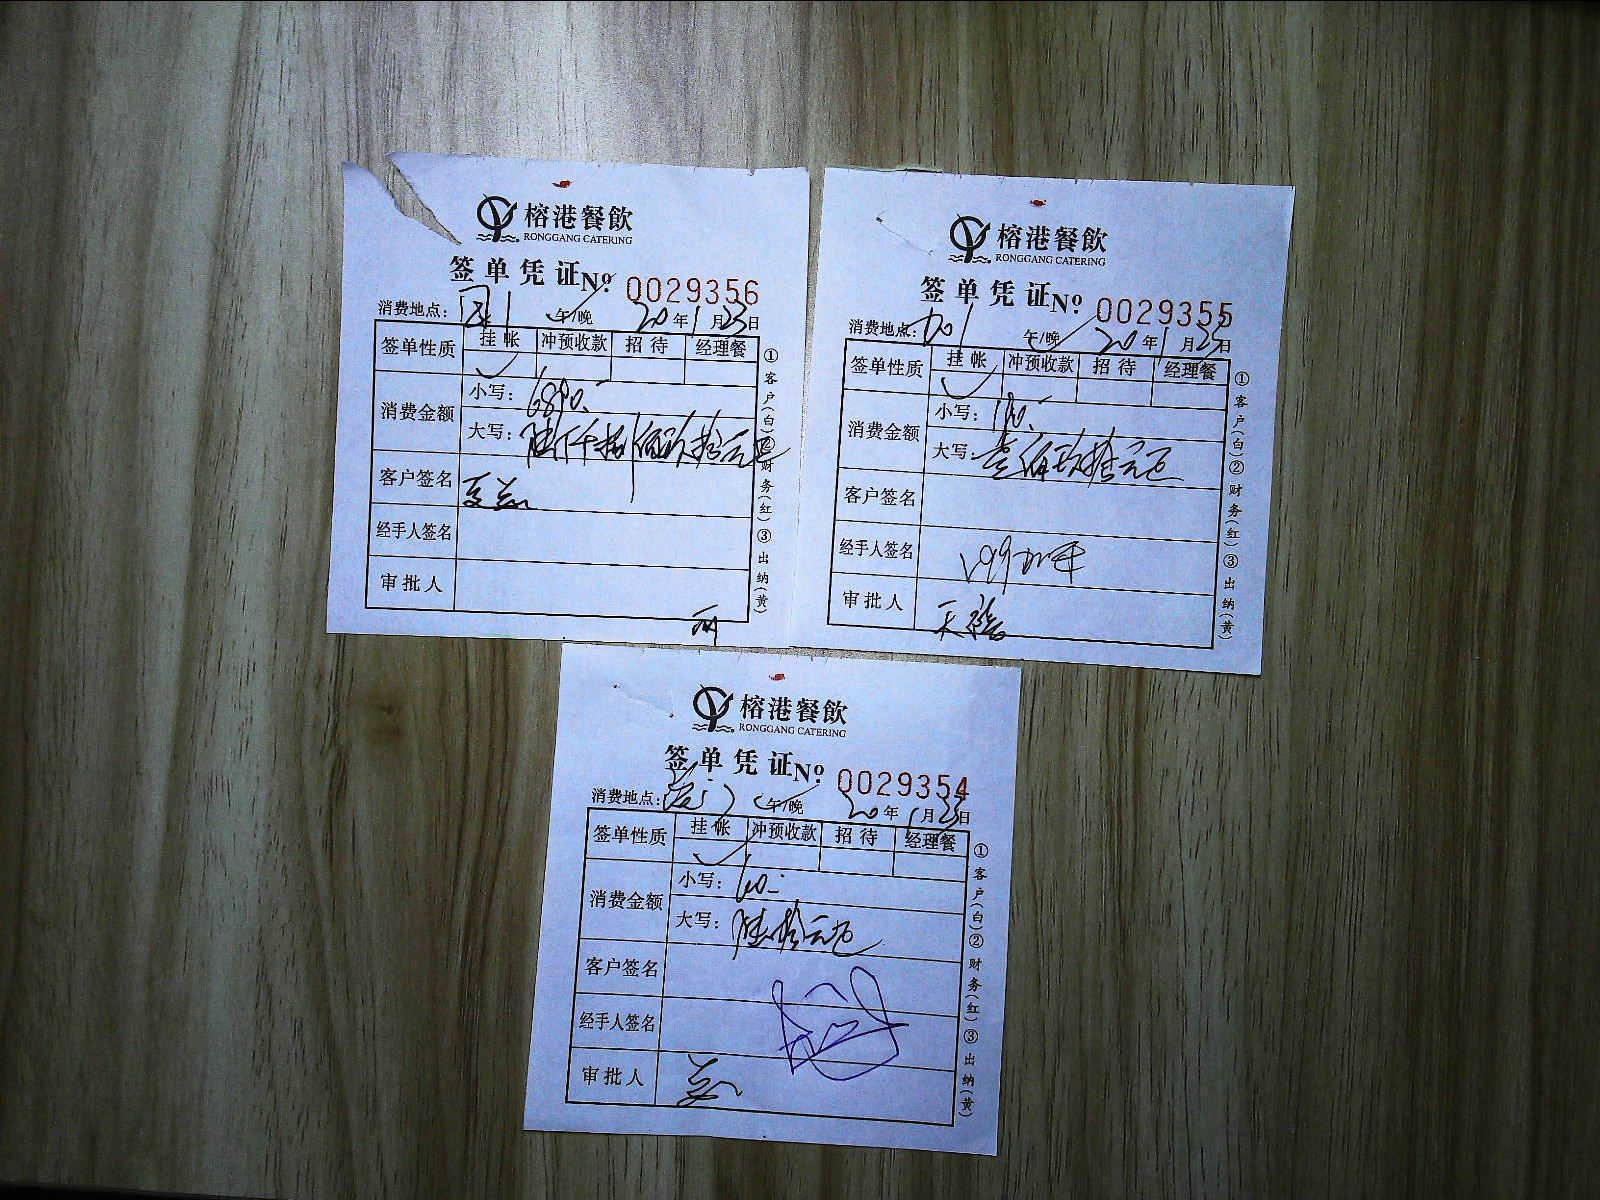 榕港餐飲
RONGGANG CATERING
签单凭证 No. 0029356
消费地点: 午/晚 20年1月23日
签单性质 挂帐 冲预收款 招待 经理餐
消费金额 小写: 6890.-
大写: 陆仟捌佰玖拾元
客户签名
经手人签名
审批人
①客户(白)②财务(红)③出纳(黄)
榕港餐飲
RONGGANG CATERING
签单凭证 No. 0029355
消费地点: 午/晚 20年1月23日
签单性质 挂帐 冲预收款 招待 经理餐
消费金额 小写: 190.-
大写: 壹佰玖拾元
客户签名
经手人签名
审批人
①客户(白)②财务(红)③出纳(黄)
榕港餐飲
RONGGANG CATERING
签单凭证 No. 0029354
消费地点: 午/晚 20年1月23日
签单性质 挂帐 冲预收款 招待 经理餐
消费金额 小写: 60.-
大写: 陆拾元
客户签名
经手人签名
审批人
①客户(白)②财务(红)③出纳(黄)